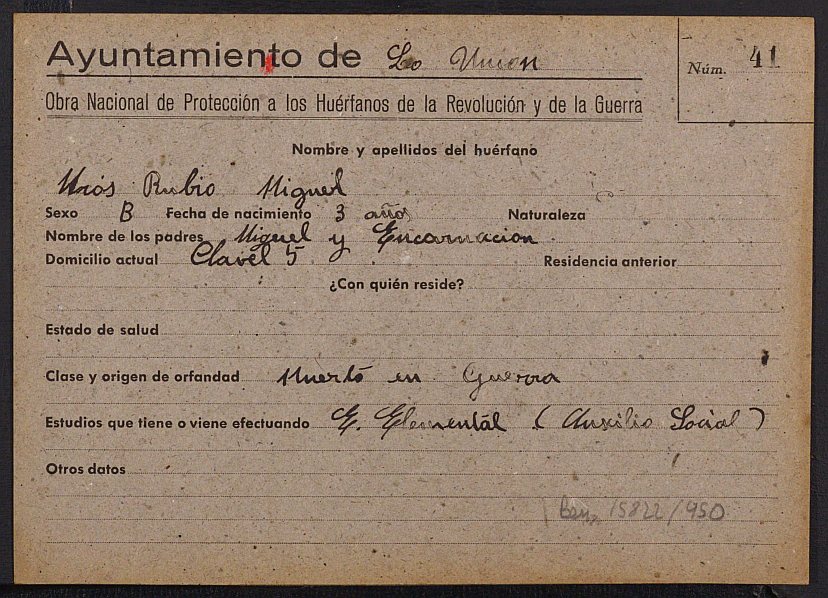 Ayuntamiento de La Union
Núm. 41
Obra Nacional de Protección a los Huérfanos de la Revolución y de la Guerra
Nombre y apellidos del huérfano
Urios Rubio Miguel
Sexo B Fecha de nacimiento 3 años Naturaleza
Nombre de los padres Miguel y Encarnacion
Domicilio actual Clavel 5 Residencia anterior
¿Con quién reside?
Estado de salud
Clase y origen de orfandad Muerto en Guerra
Estudios que tiene o viene efectuando E. Elementál (Auxilio Social)
Otros datos
15822/950